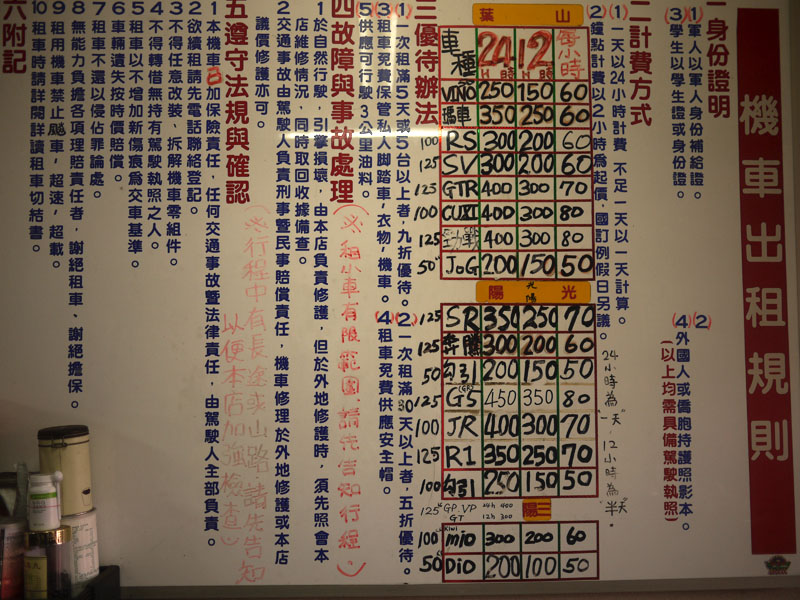 機車出租規則
一身份證明
(1)軍人以軍人身份補給證。
(2)
(3)學生以學生證或身份證。
(4)外國人或僑胞持護照影本。
(以上均需具備駕駛執照)
二計費方式
(1)一天以24小時計費 不足一天以一天計算。
(2)鐘點計費以2小時為起價,國訂例假日另議。
24小時為一天 12小時為"半天"。
葉山
車種 24H時 12H時 每小時
VINO 250 150 60
瑪車 350 250 60
100 RS 300 200 60
125 SV 300 200 60
125 GTR 400 300 70
100 CUXI 400 300 80
125 勁戰 400 300 80
50 JOG 200 150 50
陽光
光陽
125 SR 350 250 70
125 奔騰 300 200 60
50 勾引 200 150 50
125 G5 450 350 80
100 JR 400 300 70
125 R1 350 250 70
100 勾引 250 150 50
125 GP.VP GT 24h 400 12h 300
陽三
100 Kiwi mio 300 200 60
50 Dio 200 100 50
三優待辦法
(1)一次租滿5天或5台以上者,九折優待。
(2)一次租滿30天以上者,五折優待。
(3)租車免費保管私人腳踏車,衣物,機車。
(4)租車免費供應安全帽。
(5)供應可行駛3公里油料。
四故障與事故處理
(※租小車有限範圍,請先告知行程。)
1於自然行駛,引擎損壞,由本店負責修護,但於外地修護時,須先照會本
店維修情況,同時取回收據備查。
2交通事故由駕駛人負責刑事暨民事賠償責任,機車修理於外地修護或本店
議價修護亦可。
五遵守法規與確認
(※行程中有長途或山路請先告知
以便本店加強檢查)
1本機車已加保險責任,任何交通事故暨法律責任,由駕駛人全部負責。
2欲續租請先電話聯絡登記。
3不得任意改裝、拆解機車零組件。
4不得轉借無持有駕駛執照之人。
5租車以不增加新傷痕為交車基準。
6車輛遺失按時價賠償。
7租車不還以侵佔罪論處。
8無能力負擔各項理賠責任者,謝絕租車、謝絕擔保。
9租用機車禁止飈車,超速,超載。
10租車時請詳閱詳讀租車切結書。
六附記